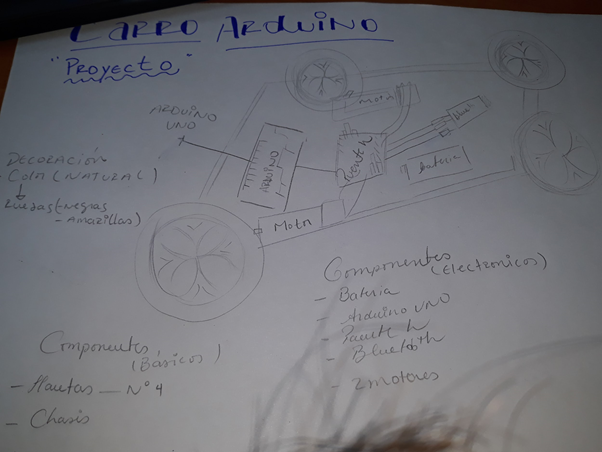 CARRO ARDUINO
"PROYECTO"
ARDUINO
UNO
DECORACIÓN
- Color (NATURAL)
Ruedas (- Negras
- Amarillas)
ARDUINO
Motor
PUENTE h
Bateria
Motor
Componentes
(Electronicos)
- Bateria
- Arduino UNO
- Puente h
- Bluetooth
- 2 motores
Componentes
(Básicos)
- Llantas — N° 4
- Chasis